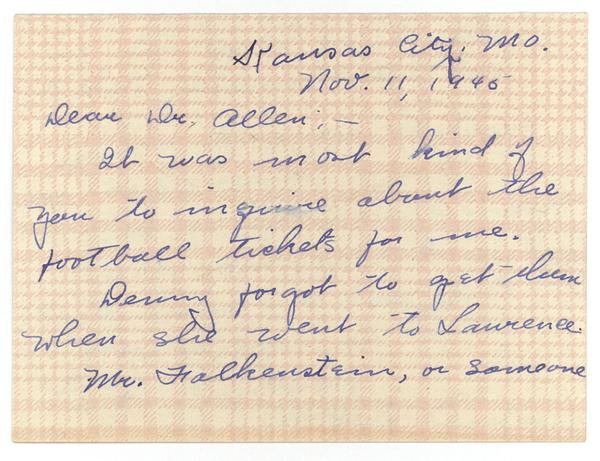 Kansas City, Mo.
Nov. 11, 1945
Dear Dr. Allen; —
It was most kind of
you to inquire about the
football tickets for me.
Denny forgot to get them
when she went to Lawrence.
Mr. Falkenstein, or someone